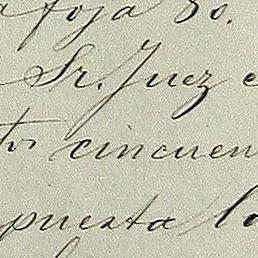 a foja 80.
Sr. Juez c
tos cincuen
puesta la